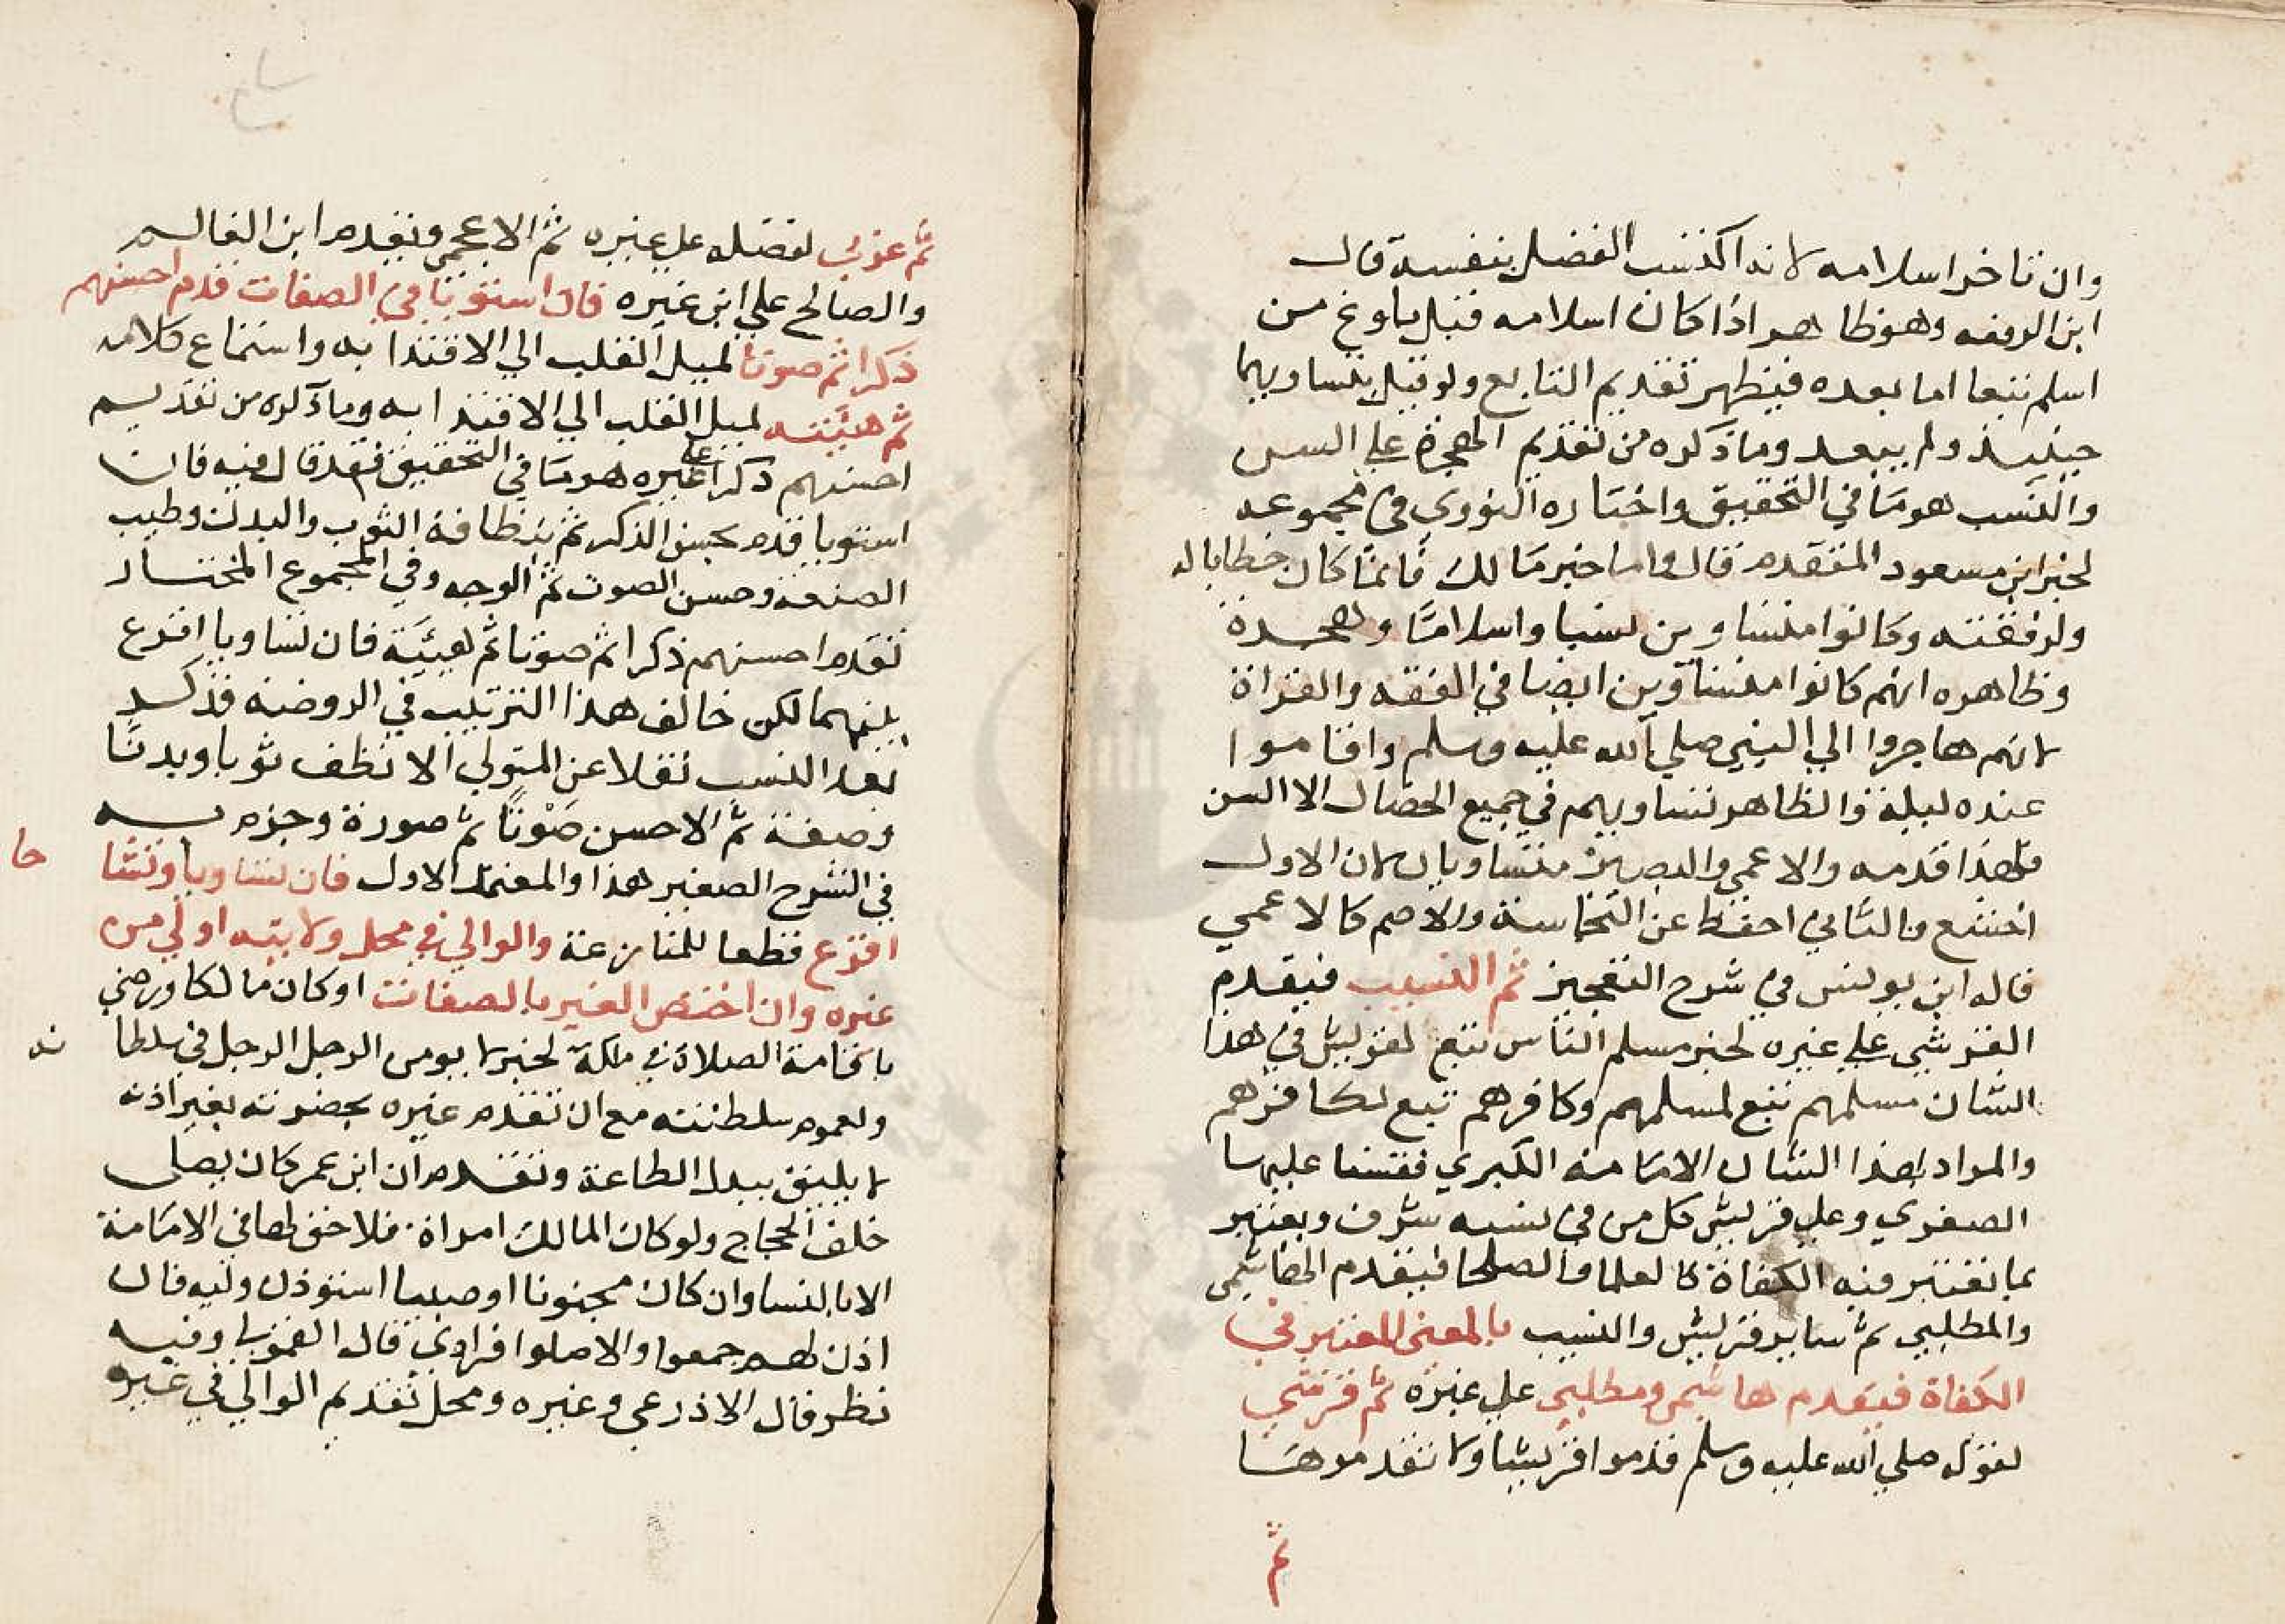 وان تاخر اسلامه لانه اكتسب الفضل بنفسه قال
ابن الرفعه وهو ظاهر اذا كان اسلامه قبل بلوغ من
اسلم تبعا اما بعده فيظهر تقديم التابع ولو قيل بتساويهما
حينئذ ولم يبعد وما ذكره من تقديم الهجرة على السن
والنسب هو ما في التحقيق واختاره النووي في مجموعه
لخبر ابن مسعود المتقدم قال واما خبر مالك فانما كان خطابا له
ولرفقته وكانوا متساوين نسبا واسلاما وهجرة
وظاهره انهم كانوا متساوين ايضا في الفقه والقراة
لانهم هاجروا الي النبي صلي الله عليه وسلم واقاموا
عنده ليلة والظاهر تساويهم في جميع الخصال الا السن
فلهذا قدمه والاعمي والبصير متساويان لان الاول
اخشع والثاني احفظ عن النجاسة والاصم كالاعمي
قاله ابن يونس في شرح التعجيز ثم النسيب فيقدم
القرشي علي غيره لخبر مسلم الناس تبع لقريش في هذا
الشان مسلمهم تبع لمسلمهم وكافرهم تبع لكافرهم
والمراد بهذا الشان الامامة الكبري فقسنا عليها
الصغري وعلي قريش كل من في نسبه شرف ويعتبر
بما تعتبر فيه الكفاة كالعلما والصلحا فيقدم الهاشمي
والمطلبي ثم ساير قريش والنسيب بالمعني المعتبر في
الكفاة فيقدم هاشمي ومطلبي علي غيره ثم قرشي
لقوله صلي الله عليه وسلم قدموا قريشا ولا تقدموها
ثم
ثم عربي لفضله علي غيره ثم الاعجمي ويقدم ابن العالم
والصالح علي ابن غيره فان استويا في الصفات قدم احسنهم
ذكرا ثم صوتا لميل القلب الي الاقتدا به واستماع كلامه
ثم هيئته لميل القلب الي الاقتدا به وما ذكره من تقديم
احسنهم ذكرا علي غيره هو ما في التحقيق فقد قال فيه فان
استويا قدم بحسن الذكر ثم بنظافة الثوب والبدن وطيب
الصنعة وحسن الصوت ثم الوجه وفي المجموع المختار
تقدم احسنهم ذكرا ثم صوتا ثم هيئة فان تساويا اقرع
بينهما لكن خالف هذا الترتيب في الروضة فذكر
بعد النسب نقلا عن المتولي الانظف ثوبا وبدنا
وصنعة ثم الاحسن صوتا ثم صورة وجزم به
في الشرح الصغير هذا والمعتمد الاول فان تساويا وتشا
حا
اقرع قطعا للمنازعة والوالي في محل ولايته اولي من
غيره وان اختص الغير بالصفات او كان مالكا ورضي
باقامة الصلاة في ملكه لخبر لا يومن الرجل الرجل في سلطا
نه
ولعموم سلطنته مع ان تقدم غيره بحضرته بغير اذنه
لا يليق ببذل الطاعة وتقدم ان ابن عمر كان يصلي
خلف الحجاج ولو كان المالك امراة فلا حق لها في الامامة
الا بالنسا وان كان مجنونا او صبيا استوذن وليه فان
اذن لهم جمعوا والا صلوا فرادي قاله القمولي وفيه
نظر قال الاذرعي وغيره ومحل تقديم الوالي في غيره